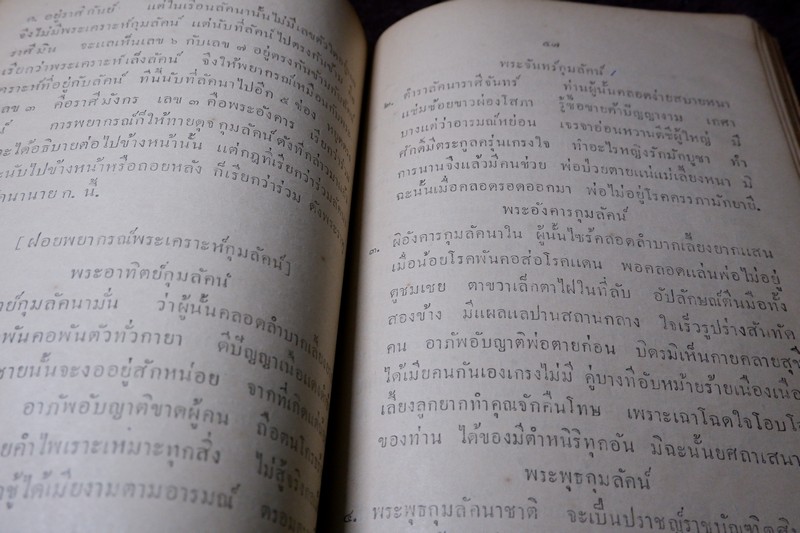 ๓. อยู่ราศีกันย์ แต่ในเรือนลัคนานั้นไม่มีเลขตัวใด
จึงไม่มีพระเคราะห์กุมลัคน์ แต่นับที่ลัคน์ไปตรงกัน
ราศีมีน จะแลเห็นเลข ๖ กับเลข ๗ อยู่ตรงกันข้าม
เรียกว่าพระเคราะห์เล็งลัคน์ จึงให้พยากรณ์เหมือนกับ
เคราะห์ที่อยู่กับลัคน์ ที่นี้นับที่ลัคนาไปอีก ๕ ช่อง
เลข ๓ คือราศีมังกร เลข ๓ คือพระอังคาร เรียกว่า
น์ การพยากรณ์ก็ให้ทายดุจกุมลัคน์ดังที่กล่าวมา
จะได้อธิบายต่อไปข้างหน้านั้น แต่กฎที่เรียกว่าร่วม
จะนับไปข้างหน้าหรือถอยหลัง ก็เรียกว่าร่วม
ลัคนานาย ก. นี้
[ฝอยพยากรณ์พระเคราะห์กุมลัคน์]
พระอาทิตย์กุมลัคน์
ย์กุมลัคนามั่น ว่าผู้นั้นคลอดลำบาก
พันคอพันตัวทั่วกายา ดีปัญญา
ชายนั้นจะงออยู่สักหน่อย จากที่เกิด
อาภัพอับญาติขาดผู้คน ถือตน
ยคำไพเราะเหมาะทุกสิ่ง ไม่สู้จริง
ชู้ได้เมียงามตามอารมณ์
๘๗
พระจันทร์กุมลัคน์
๒. ตำราลัคนาราศีจันทร์ ท่านผู้นั้นคลอดง่ายสบายหนา
แช่มช้อยขาวผ่องโสภา รู้ซื้อขายค้าปัญญางาม เกศา
บางแคว่าอารมณ์หย่อน เจรจาอ่อนหวานดีชีผู้ใหญ่ มี
ศักดิ์มีตระกูลครุ่นเกรงใจ ทำอะไรหญิงรักมักบูชา ทำ
การนานจึงแล้วมีคนช่วย พ่อป่วยตายแน่แม่เลี้ยงหนา มิ
ฉะนั้นเมื่อคลอดรอดออกมา พ่อไม่อยู่โรคครรภามักยายี.
พระอังคารกุมลัคน์
๓. ผิอังคารกุมลัคนาใน ผู้นั้นไซร้คลอดลำบากเลี้ยงยากแสน
เมื่อน้อยโรคพันคอส่อโรคแดน พอคลอดแล่นพ่อไม่อยู่
ดูชมเชย ตาขวาเล็กตาไฝในที่ลับ อัปลักษณ์ตีนมือทั้ง
สองข้าง มีแผลแลปานสถานกลาง ใจเร็วรูปร่างสันทัด
คน อาภัพอับญาติพ่อตายก่อน บิตรมิเห็นกายคลายสุ
ได้เมียคนกันเองเกรงไม่มี คู่บางที่อับหม้ายร้ายเนื่อง
เลี้ยงลูกยากทำคุณจักคืนโทษ เพราะเฉาโฉดใจโอบ
ของท่าน ได้ของมีตำหนิริทุกอัน มิฉะนั้นยศถาเสนา
พระพุธกุมลัคน์
๔. พระพุธกุมลัคนาชาติ จะเป็นปราชญ์ราชบัณฑิต